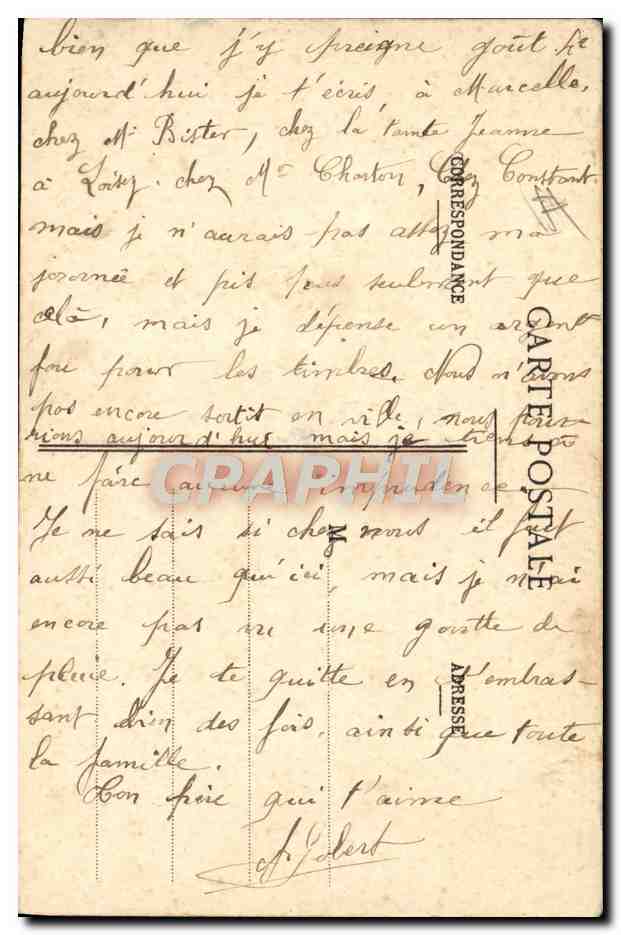 bien que j'y preigne goût. Et
aujourd'hui je t'écris, à Marcelle,
chez Mr Bister, chez la tante Jeanne
à Loisy. chez Mr Charton, chez Constant
mais je n'aurais pas assez ma
journée et pis pas seulement que
celà, mais je dépense un argent
fou pour les timbres. Nous n'avons
pas encore sortit en ville, nous pour-
rions aujourd'hui mais je tiens à
ne faire aucune imprudence
Je ne sais si chez nous il fait
aussi beau qu'ici, mais je n'ai
encore pas vu une goutte de
pluie. Je te quitte en t'embras-
sant bien des fois, ainsi que toute
la famille.
Ton frère qui t'aime
A Jobert
CARTE POSTALE
CORRESPONDANCE
ADRESSE
M
CPAPHIL